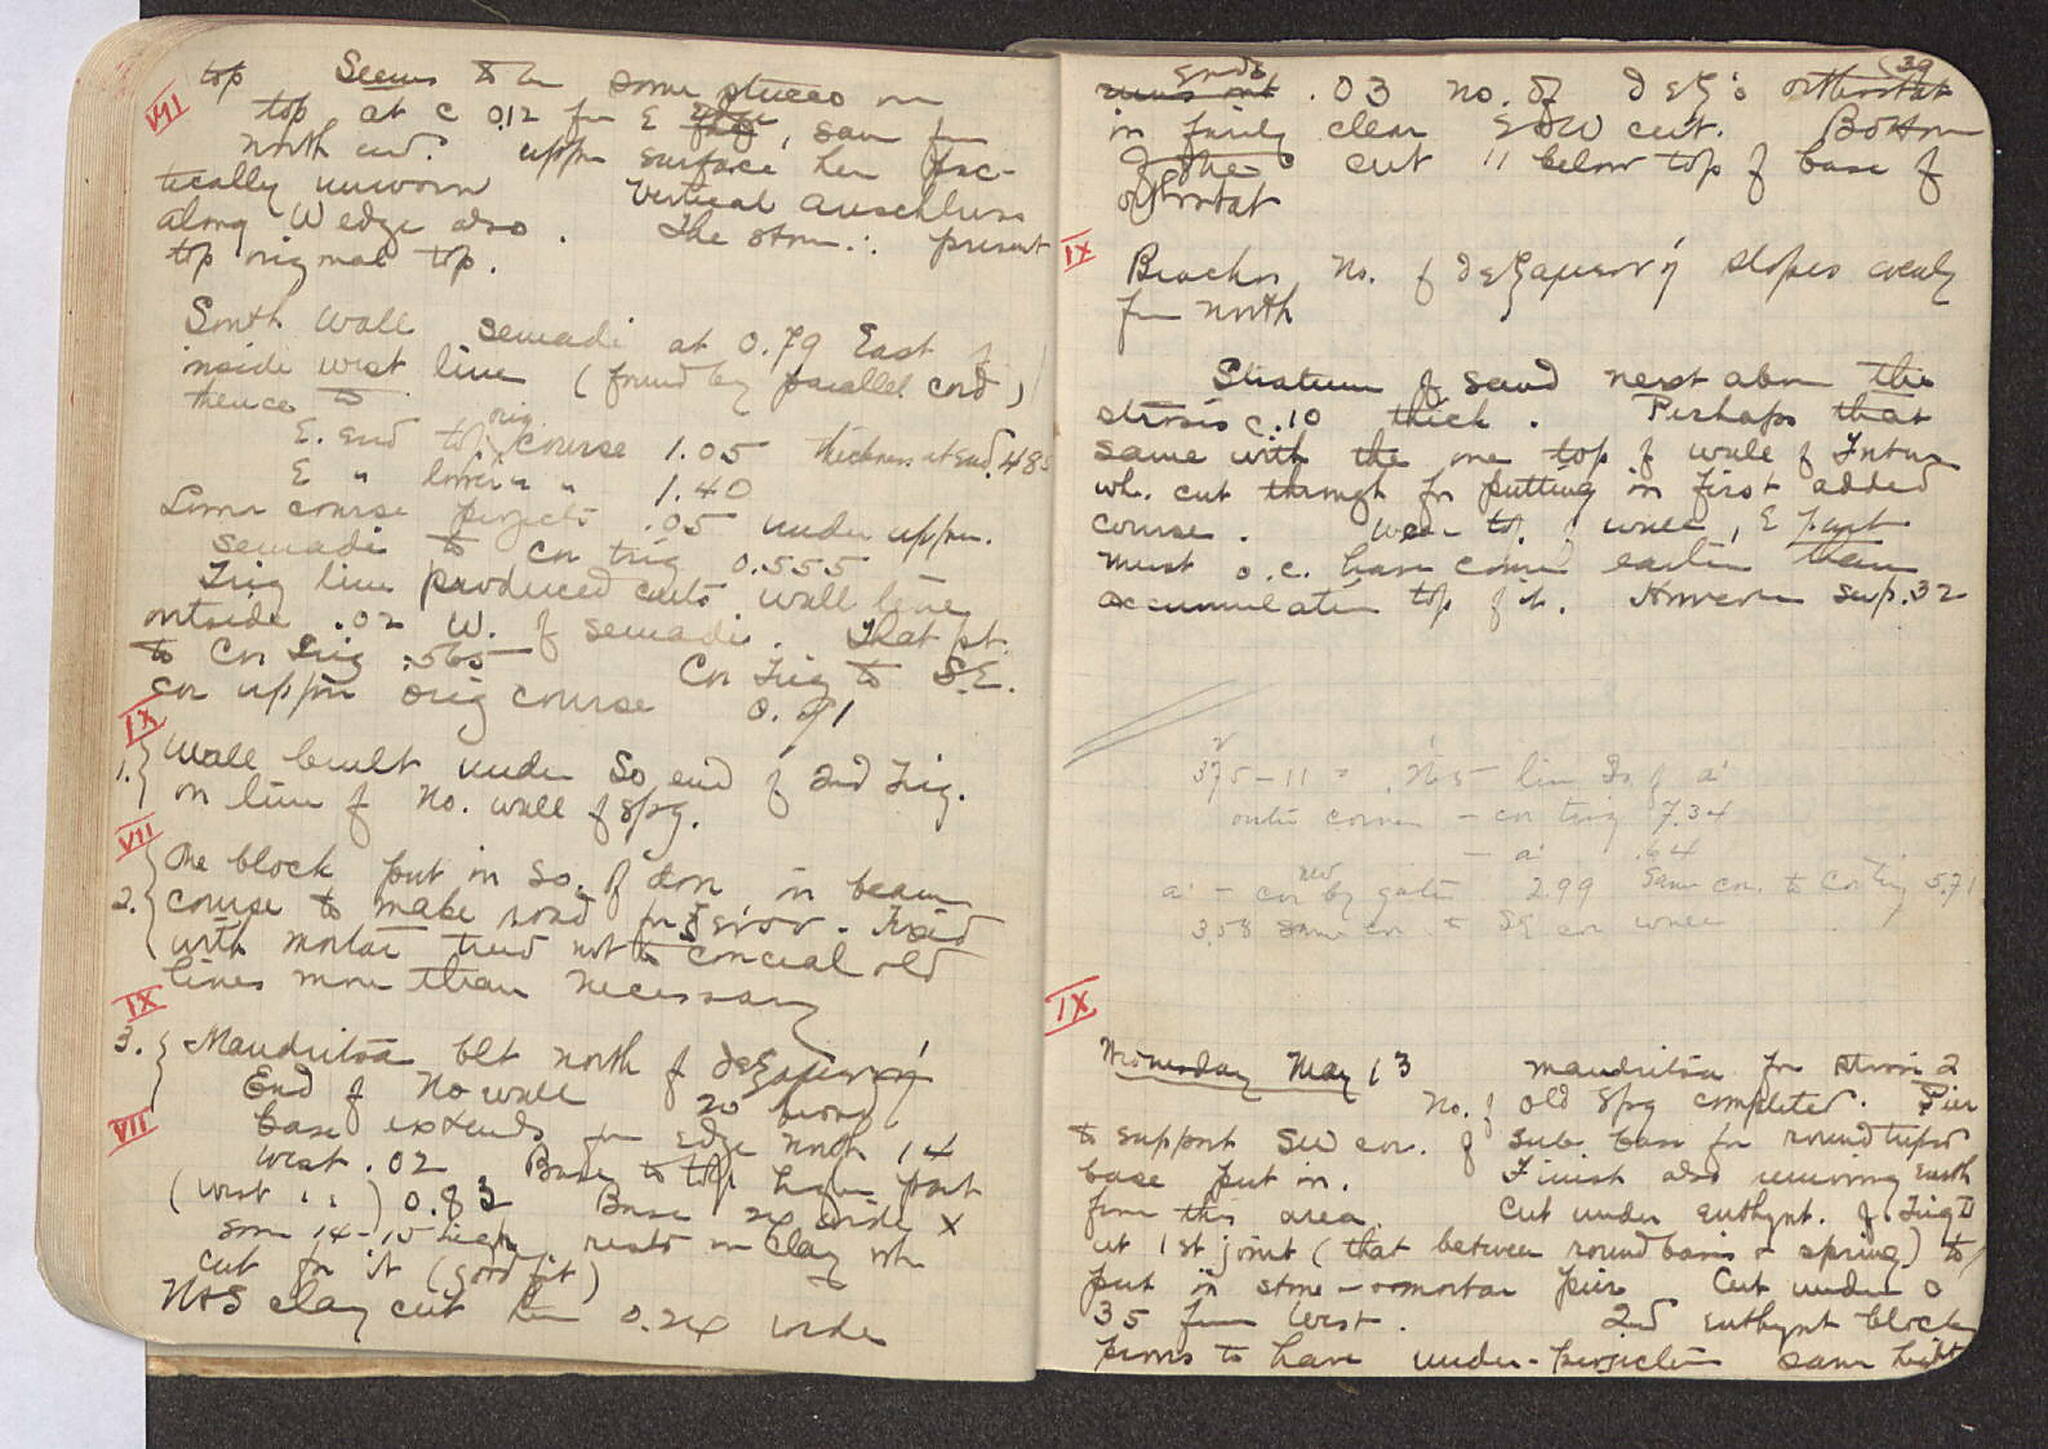 VII
top Seems to be some stucco on
top at c 0.12 fm E edge, same fm
north end. upper surface here prac-
tically unworn Vertical anschluss
along W edge also. The stone ∴ present
top original top.
South Wall semadi at 0.79 East of
inside west line (found by parallel cord)
thence to
E. end top orig course 1.05 thickness at end .485
E " lower " " 1.40
Lower course projects .05 under upper.
semadi to cor trig 0.555
Trig line produced cuts wall line
outside .02 W. of semadi. That pt.
to Cor Trig .565 Cor Trig to S.E.
cor upper orig course 0.91
IX
1. Wall built under So end of 2nd Trig.
on line of No. wall of spg.
VII
2. One block put in So. of door, in beam
course to make road for
with mortar tried not to conceal old
lines more than necessary
IX
3. Mandritsa blt north of δεξαμενή
End of No wall
VII
base extends fm edge north 14
west .02 Base to top higher part
(west " ) 0.83 Base wide x
some 14-15 high, rests on clay wh
cut for it (good fit)
N+S clay cut here wide
39
ends
runs out .03 no. of δεξ's orthostat
in fairly clear E+W cut. Bottom
of the cut 11 below top of base of
orthostat
IX
Brachos No. of δεξαμενή slopes evenly
fm north
Stratum of sand next above the
strosis c .10 thick. Perhaps that
same with the one top of wall of
wh. cut through for putting in first added
course. Wear top of wall, E part
must o.c. have come earlier than
accumulation top of it. However sup. 32
375-11 = line So. of a'
outer corner - cor trig 7.34
- a' .64
a' - cor new by gate 2.99 same cor. to Cor Trig 5.71
3.58 same cor to SE cor wall
IX
Wednesday May 13 mandritsa for strosis 2
No. of old spg completed. Pier
to support SW cor. of sub base for round tripod
base put in. Finish also removing earth
from this area. Cut under euthynt. of Trig II
at 1st joint (that between round basis + spring) to
put in stone - mortar pier Cut under 0
35 from West. 2nd euthynt block
proves to have under-projection same height